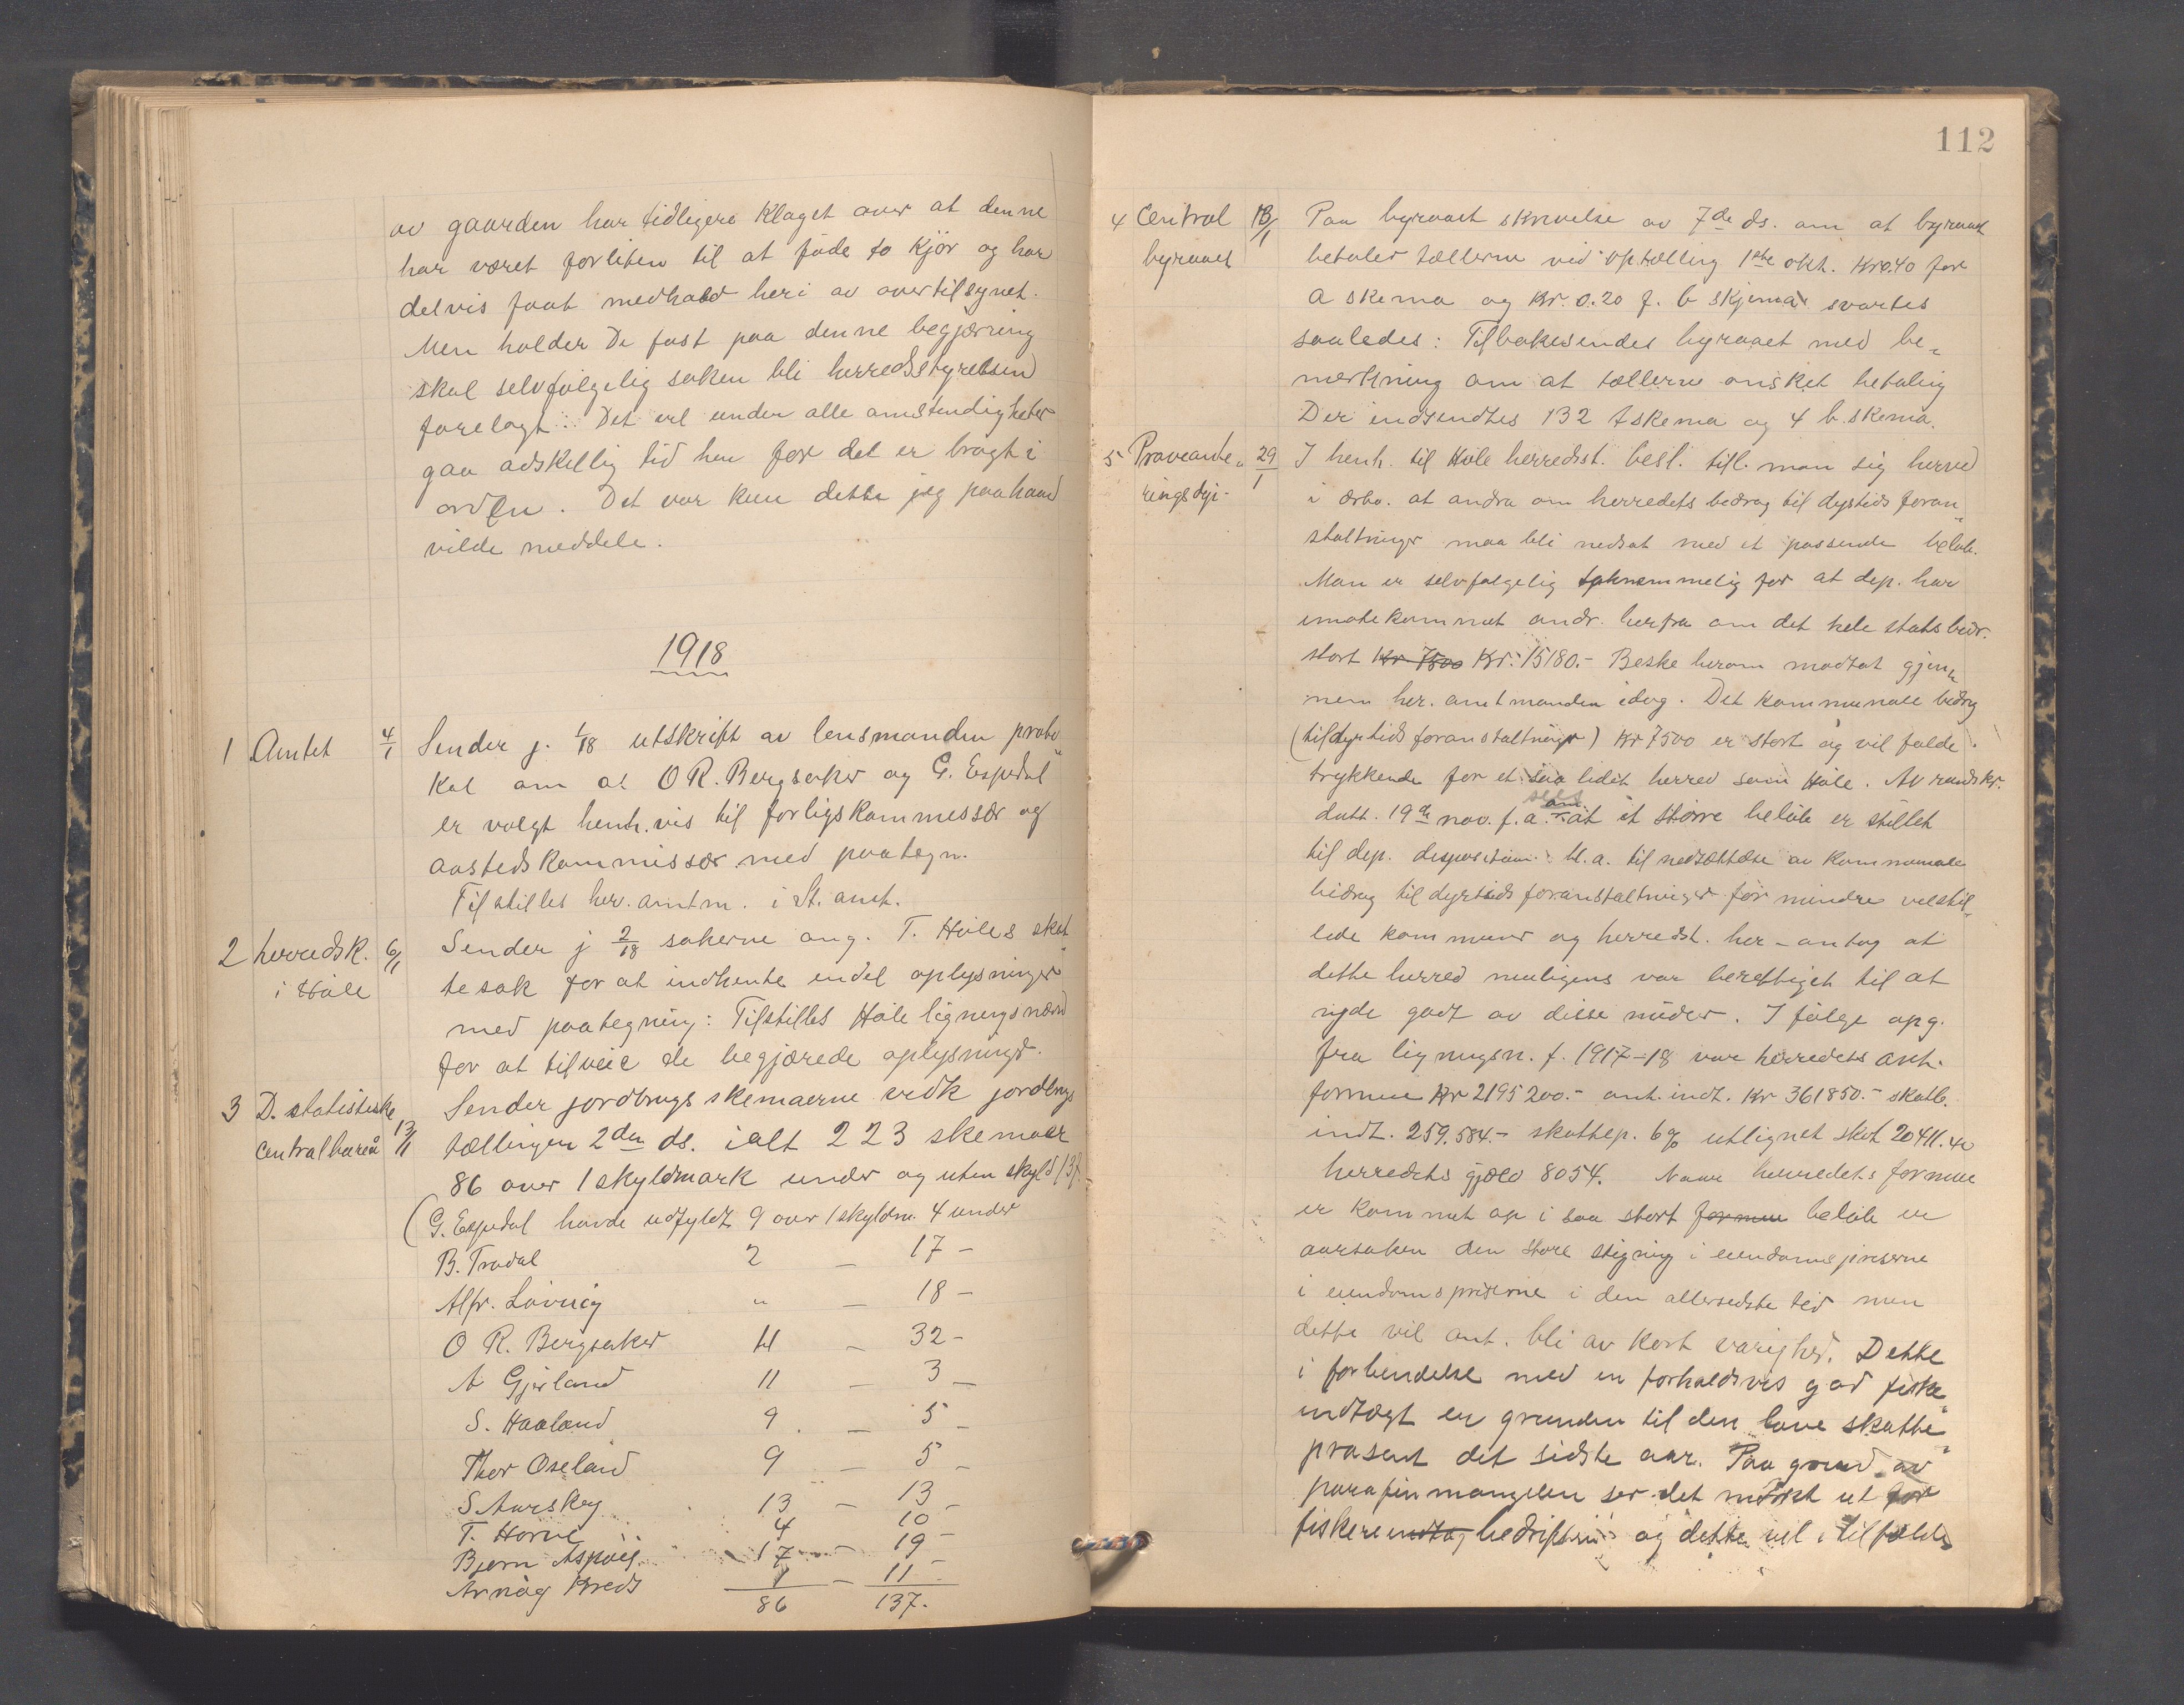 av gaarden har tidligere klaget over at denne
har været forliten til at föde to kjör og har
delvis faat medhold heri av overtilsynet.
Men holder De fast paa denne begjæring
skal selvfölgelig saken bli herredsstyrelsen
forelagt. Det vil under alle omstendigheter
gaa adskillig tid hen før det er bragt i
orden. Det var kun dette jeg paa haand
vilde meddele.
1918
1 Amtet 4/1 Sender j. 1/18 utskrift av lensmanden proto„
kol om at O R. Bergsaker og G. Espedal
er valgt henh.vis til forligskommessær og
aastedskommissær med paategn.
Tilstilles her. amtm. i St. amt.
2 herredsk. 6/1 Sender j 2/18 sakerne ang. T. Höles skat
i Höle te sak for at indhente endel oplysninger
med paategning: Tilstilles Höle ligningsnævnd
for at tilveie de begjærede oplysninger.
3 D. statistiske Sender jordbrugsskemaerne vedk jordbrugs
Centralbureå 13/1 tællingen 2den ds. ialt 223 skemaer
86 over 1 skyldmark under og uten skyld 137
(G. Espedal havde udfyldt 9 over 1 skyldm. 4 under
B. Tradal 2 — 17 —
Alfr. Lövvig „ — 18 —
O R. Bergsaker 11 — 32 —
A Gjerland 11 — 3 —
S. Haaland 9 — 5 —
Thor Oseland 9 — 5 —
S. Aarskog 13 — 13 —
T. Horne 4 10
Bjørn Aspöig 17 — 19 —
Arnög Kreds 1 — 11 —
86 137.
112
4 Central 18/1 Paa byraaet skrivelse av 7de ds. om at byraaet
byraaet betaler tællerne vid optælling 1ste okt. Kr 0.40 for
a skema og Kr. 0.20 f. b skjema svartes
saaledes: Tilbakesendes byraaet med be„
merkning om at tællerne önsket betaling
Der indsendtes 132 A skema og 4 b. skema.
5 Proviante„ 29/1 I henh. til Höle herredsst. besl. till. man sig herved
rings dir. i ærbö. at andra om herredets bedrag til dyrtids foran„
staltninger maa bli nedsat med et passende belöb.
Man er selvfölgelig taknemmelig for at dep. har
imötekommet andr. herfra om det hele statsbidr.
stort Kr 7500 Kr. 15180.- Beske herom modtat gjen„
nem her. amtmanden idag. Det kommunale bidrag
(til dyrtidsforanstaltninger) Kr 7500 er stort og vil falde
trykkende for et saa lidet herred som Höle. Av rundskr.
datt. 19de nov. f.a. sees at et större belöb er stillet
til dep. desposition bl. a. til nedsættelse av kommunale
bidrag til dyrtids foranstaltninger for mindre velstil„
lede kommuner og herredst. her antog at
dette herred muligens var berettiget til at
nyde godt av disse midler. I fölge opg.
fra ligningsn. f. 1917-18 var herredets ant.
formue Kr 2195 200.- ant. indt. Kr 361850.- skatb.
indt. 259.584.- skattep. 6% utlignet skat 20411.40
herredets gjæld 8054. Naar herredets formue
er kommet op i saa stort formue belöb er
aarsaken den store stigning i eiendomspriserne
i eiendomspriserne i den allersidste tid men
dette vil ant. bli av kort varighed. Dette
i forbindelse med en forholdsvis god fiske„
indtægt er grunden til den lave skatte„
prosent det sidste aar. Paa grund av
parafinmangelen ser det mörkt ut for
fiskere indtæg bedriften og dette vil i tilfælde